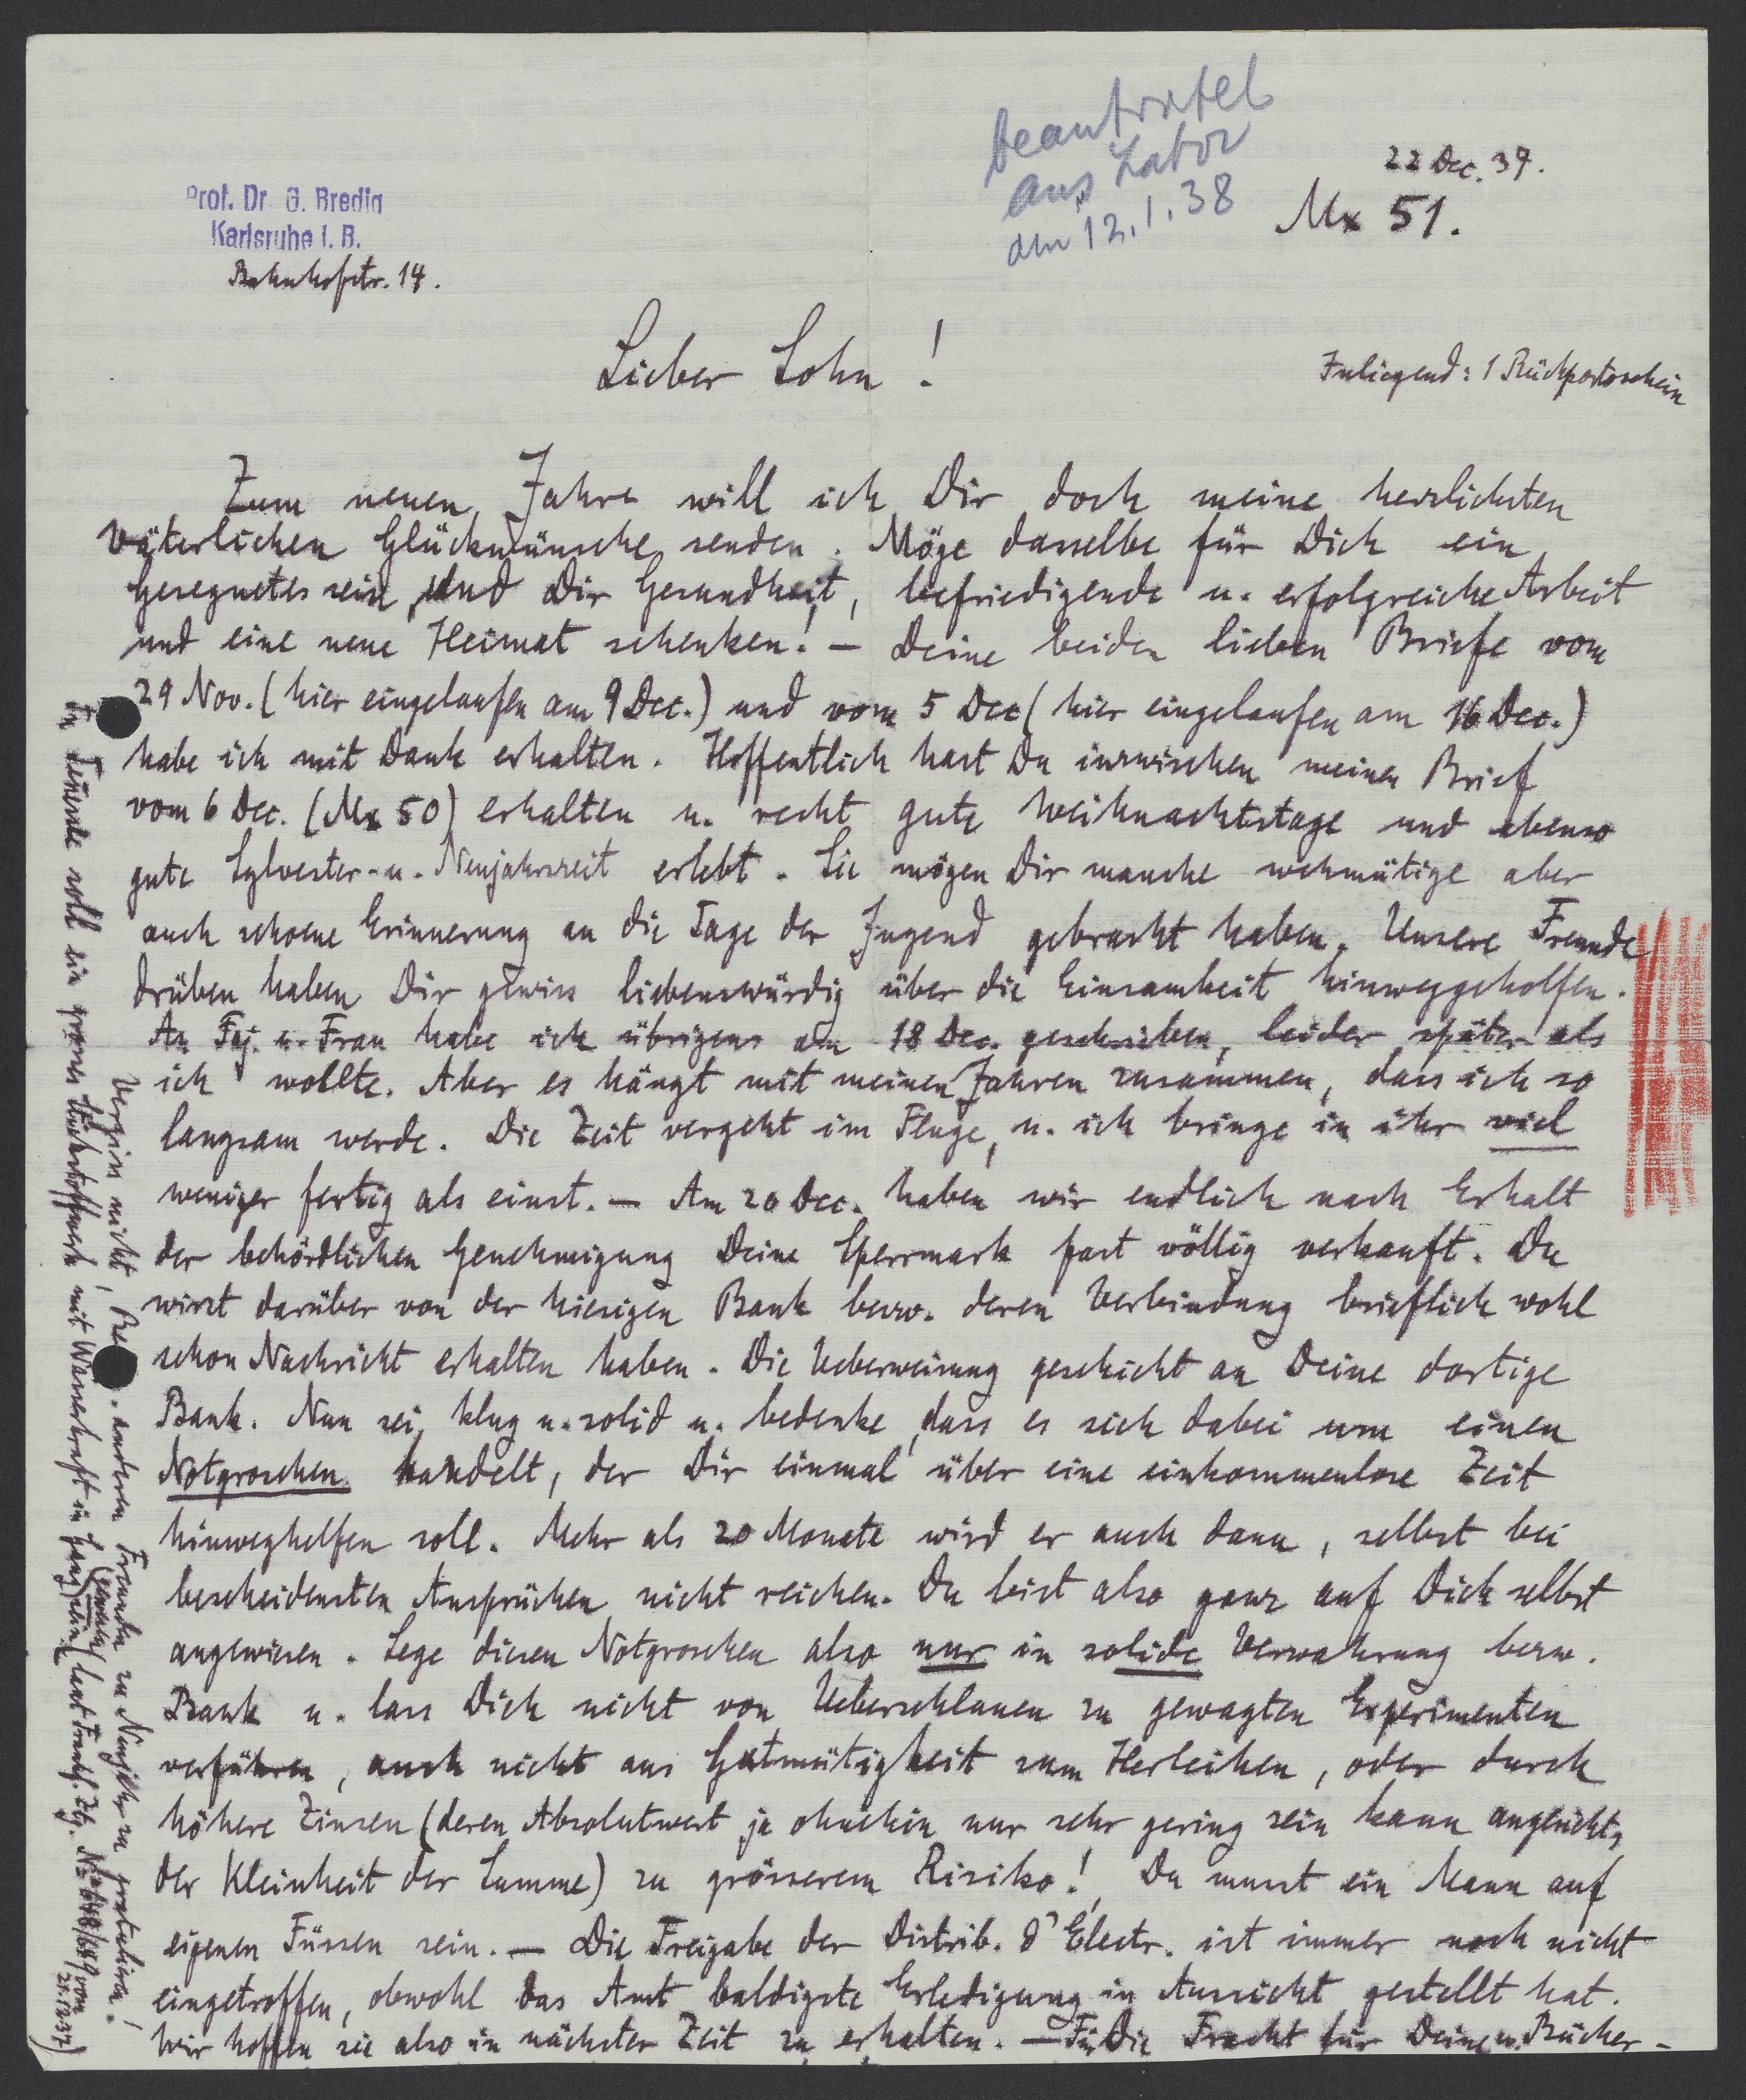 beantwortet
aus Labor
am 12.1.38
22 Dec. 37.
Mx 51.
Prof. Dr. G. Bredig
Karlsruhe i. B.
Bahnhofstr. 14.
Lieber Sohn!
Inliegend: 1 Rückportoschein
Zum neuen Jahre will ich Dir doch meine herzlichsten
väterlichen Glückwünsche senden. Möge dasselbe für Dich ein
Gesegnetes sein und Dir Gesundheit, befriedigende u. erfolgreiche Arbeit
und eine neue Heimat schenken! — Deine beiden lieben Briefe vom
29 Nov. (hier eingelaufen am 9 Dec.) und vom 5 Dec (hier eingelaufen am 16 Dec.)
habe ich mit Dank erhalten. Hoffentlich hast Du inzwischen meinen Brief
vom 6 Dec. (Mx 50) erhalten u. recht gute Weihnachtstage und ebenso
gute Sylvester- u. Neujahrszeit erlebt. Sie mögen Dir manche wehmütige aber
auch schoene Erinnerung an die Tage der Jugend gebracht haben. Unsere Freunde
drüben haben Dir gewiss liebenswürdig über die Einsamkeit hinweggeholfen.
An Faj. u. Frau habe ich übrigens am 18 Dec. geschrieben, leider später als
ich wollte. Aber es hängt mit meinen Jahren zusammen, dass ich so
langsam werde. Die Zeit vergeht im Fluge, u. ich bringe in ihr viel
weniger fertig als einst. — Am 20 Dec. haben wir endlich nach Erhalt
der behördlichen Genehmigung Deine Sperrmark fast völlig verkauft. Du
wirst darüber von der hiesigen Bank bezw. deren Verbindung brieflich wohl
schon Nachricht erhalten haben. Die Ueberweisung geschieht an Deine dortige
Bank. Nun sei klug u. solid u. bedenke, dass es sich dabei um einen
Notgroschen handelt, der Dir einmal über eine einkommenlose Zeit
hinweghelfen soll. Mehr als 20 Monate wird er auch dann, selbst bei
bescheidensten Ansprüchen nicht reichen. Du bist also ganz auf Dich selbst
angewiesen. Lege diesen Notgroschen also nur in solide Verwahrung bezw.
Bank u. lass Dich nicht von Ueberschlauen zu gewagten Experimenten
verführen, auch nicht aus Gutmütigkeit zum Herleihen, oder durch
höhere Zinsen (deren Absolutwert ja ohnehin nur sehr gering sein kann angesichts
der Kleinheit der Summe) zu grösserem Risiko! Du musst ein Mann auf
eigenen Füssen sein. — Die Freigabe der Distrib. d'Electr. ist immer noch nicht
eingetroffen, obwohl das Amt baldigste Erledigung in Aussicht gestellt hat.
Wir hoffen sie also in nächster Zeit zu erhalten. — Für die Fracht für Deine Bücher-
Vergiss nicht, anderen Freunden zu Neujahr zu gratulieren!
In soll ein grosses Stickstoffwerk mit Wasserkraft in (laut Frankf. Ztg. No 648/649 vom
21.12.37)